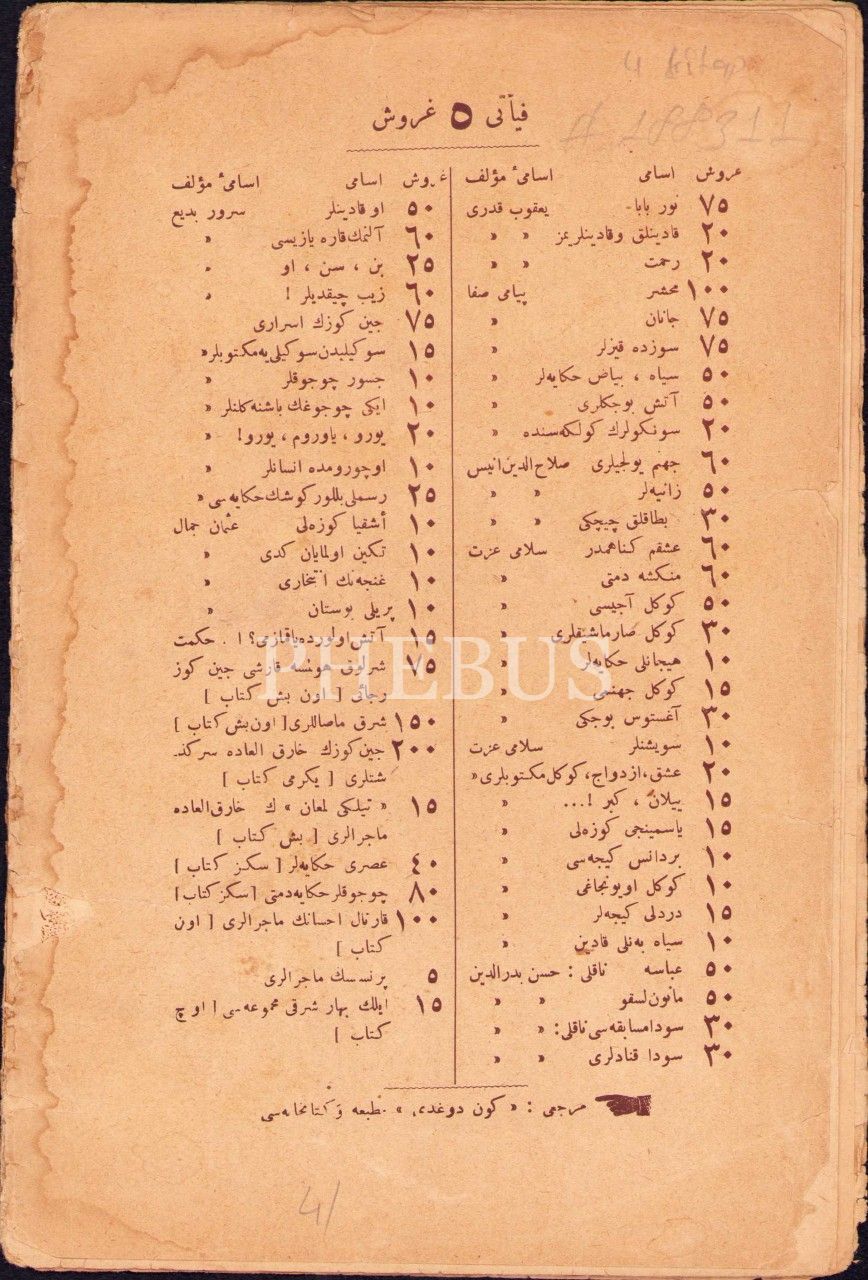 4 kitap
# 188311
فيأتی ٥ غروش
غروش اسامی اسامئ مؤلف
٧٥ نور بابا يعقوب قدری
٢٠ قادينلق وقادينلريمز » »
٢٠ رحمت » »
١٠٠ محشر پيامی صفا
٧٥ جانان »
٧٥ سوزده قيزلر »
٥٠ سياه ، بياض حكايه‌لر »
٥٠ آتش بوجكلری »
٢٠ سونكولرك كولكه‌سنده »
٦٠ جهنم يولجيلری صلاح‌الدين‌انيس
٥٠ زانيه‌لر » »
٣٠ بطاقلق چيچكی » »
٦٠ عشقم كناهمدر سلامی عزت
٦٠ منكشه دمتی »
٥٠ كوكل آجيسی »
٣٠ كوكل صارماشيقلری »
١٠ هيجانلی حكايه‌لر »
١٥ كوكل جهنمی »
٣٠ آغستوس بوجكی »
١٠ سويشنلر سلامی عزت
٢٠ عشق،ازدواج،كوكل‌مكتوبلری »
١٥ ييلان ، كبر !... »
١٥ ياسمينجی كوزه‌لی »
١٠ بر دانس كيجه‌سی »
١٠ كوكل اويونجاغی »
١٥ دردلی كيجه‌لر »
١٠ سياه به‌نلی قادين »
٥٠ عباسه ناقلی : حسن بدرالدين
٥٠ مانون‌لسقو » »
٣٠ سودامسابقه‌سی ناقلی: » »
٣٠ سودا قنادلری » »
غروش اسامی اسامئ مؤلف
٥٠ او قادينلر سرور بديع
٦٠ آلنمك‌قاره يازيسی »
٢٥ بن ، سن ، او »
٦٠ زيب چيقديلر ! »
٧٥ جين كوزك اسراری
١٥ سوكيليدن‌سوكيلی‌يه‌مكتوبلر »
١٠ جسور چوجوقلر »
١٠ ايكی چوجوغك باشنه‌كلنلر »
٢٠ يورو ، ياوروم ، يورو! »
١٠ اوچورومده انسانلر »
٢٥ رسملی‌بللوركوشك‌حكايه‌سی »
١٠ أشقيا كوزه‌لی عثمان جمال
١٠ تكين اولمايان كدی »
١٠ غنجه‌نك انتحاری »
١٠ پريلی بوستان »
١٥ آتش‌اولورده‌ياقمازمی؟ ا . حكمت
٧٥ شرلوق هولمسه قارشی جين كوز
رجائی [ اون بش كتاب ]
١٥٠ شرق ماصاللری [ اون‌بش كتاب ]
٢٠٠ جين‌كوزك خارق العاده سركذ-
شتلری [ يكرمی كتاب ]
١٥ « تيلكی لمعان » ك خارق‌العاده
ماجرالری [ بش كتاب ]
٤٠ عصری حكايه‌لر [ سكز كتاب ]
٨٠ چوجوقلرحكايه‌دمتی [سكزكتاب]
١٠٠ قارتال احسانك ماجرالری [ اون
كتاب ]
٥ پرنسسك ماجرالری
١٥ ايلك بهار شرقی مجموعه‌سی [ اوچ
كتاب ]
مرجعی : « كون دوغدی » مطبعه و كتابخانه‌سی
PHEBUS
4/